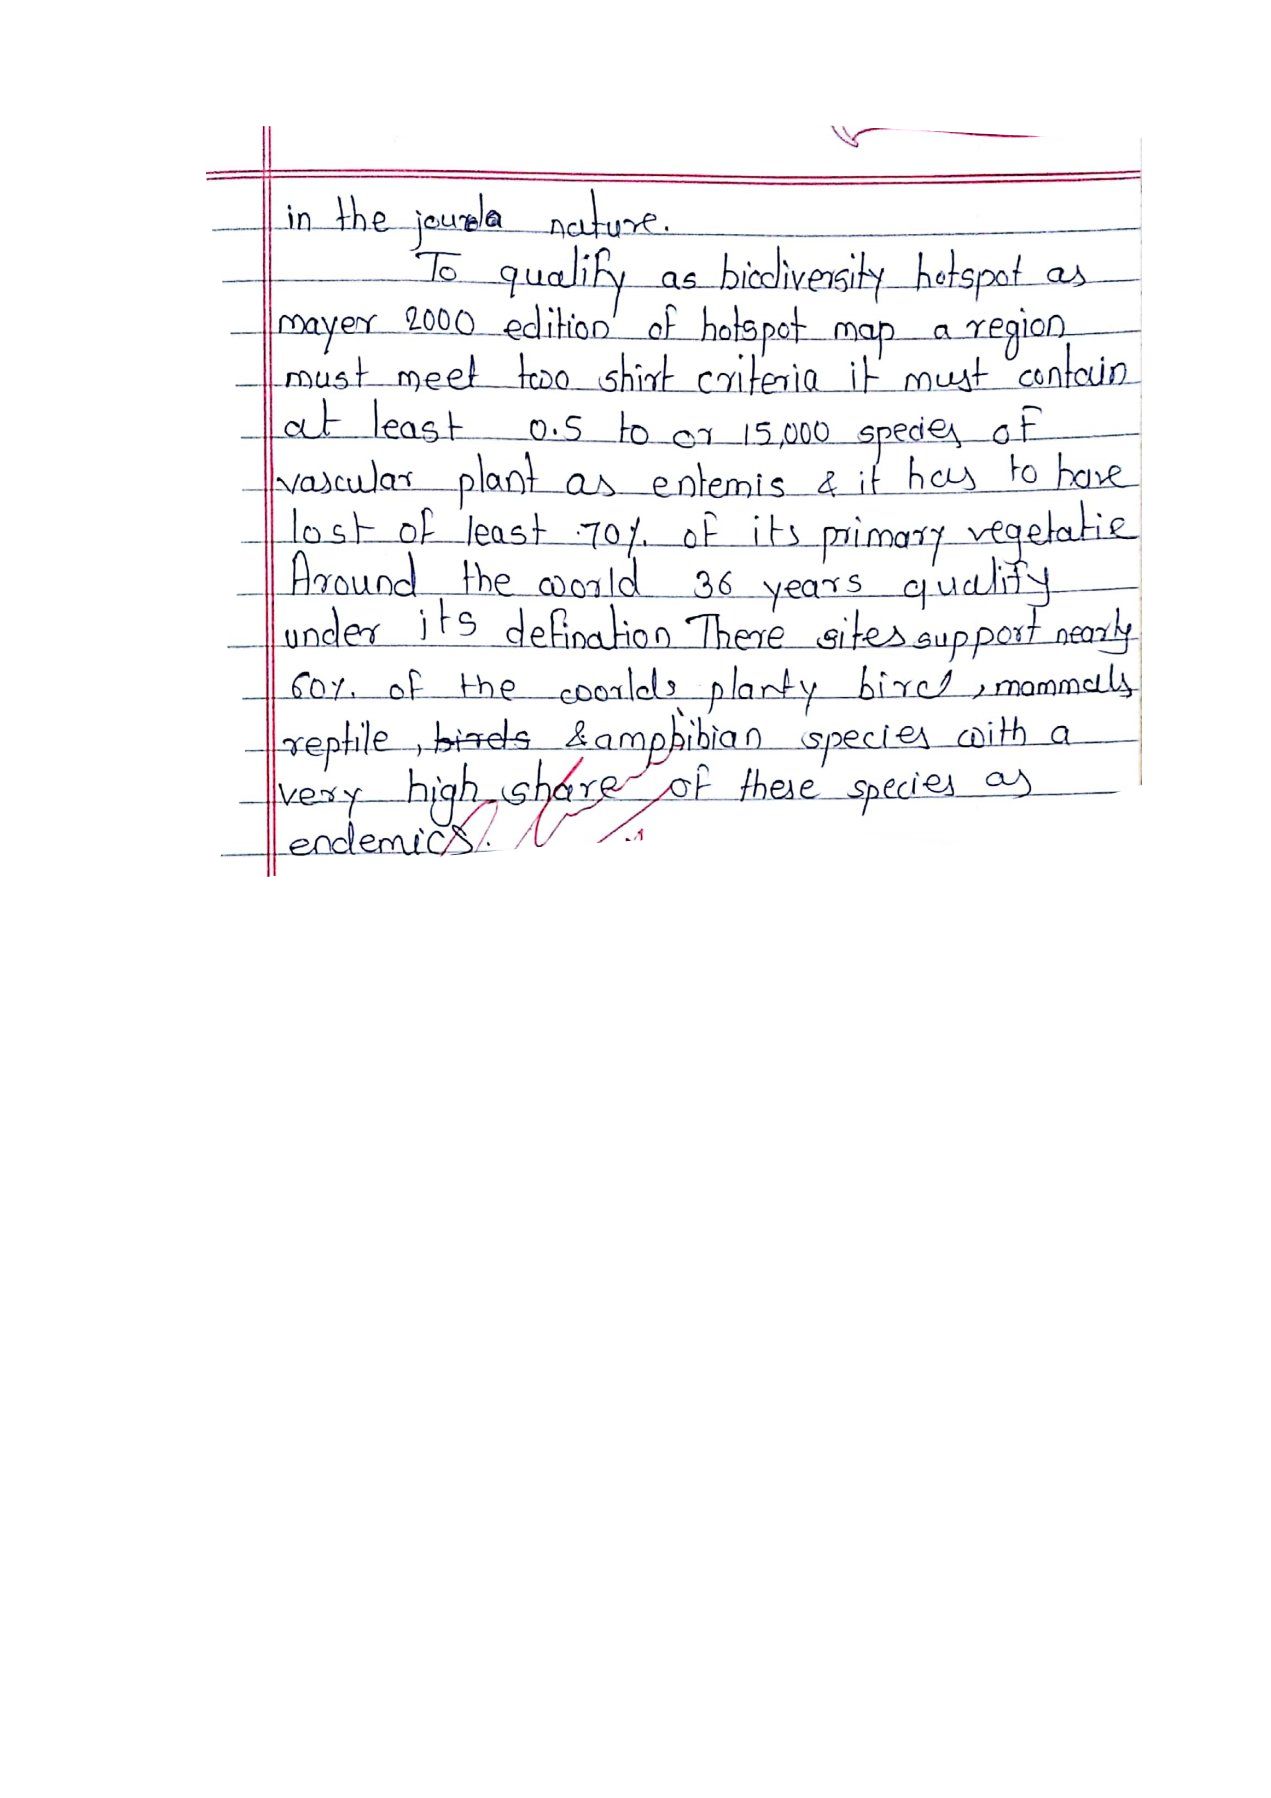 in the jourla nature.
To qualify as biodiversity hotspot as
mayer 2000 edition of hotspot map a region
must meet two shirt criteria it must contain
at least 0.5 to or 15,000 species of
vascular plant as entemis & it has to have
lost of least 70%. of its primary vegetatie
Around the world 36 years qualify
under its defination There sites support nearly
60%. of the woorlds planty bird, mammals
reptile, birds & amphibian species with a
very high share of these species as
endemics.